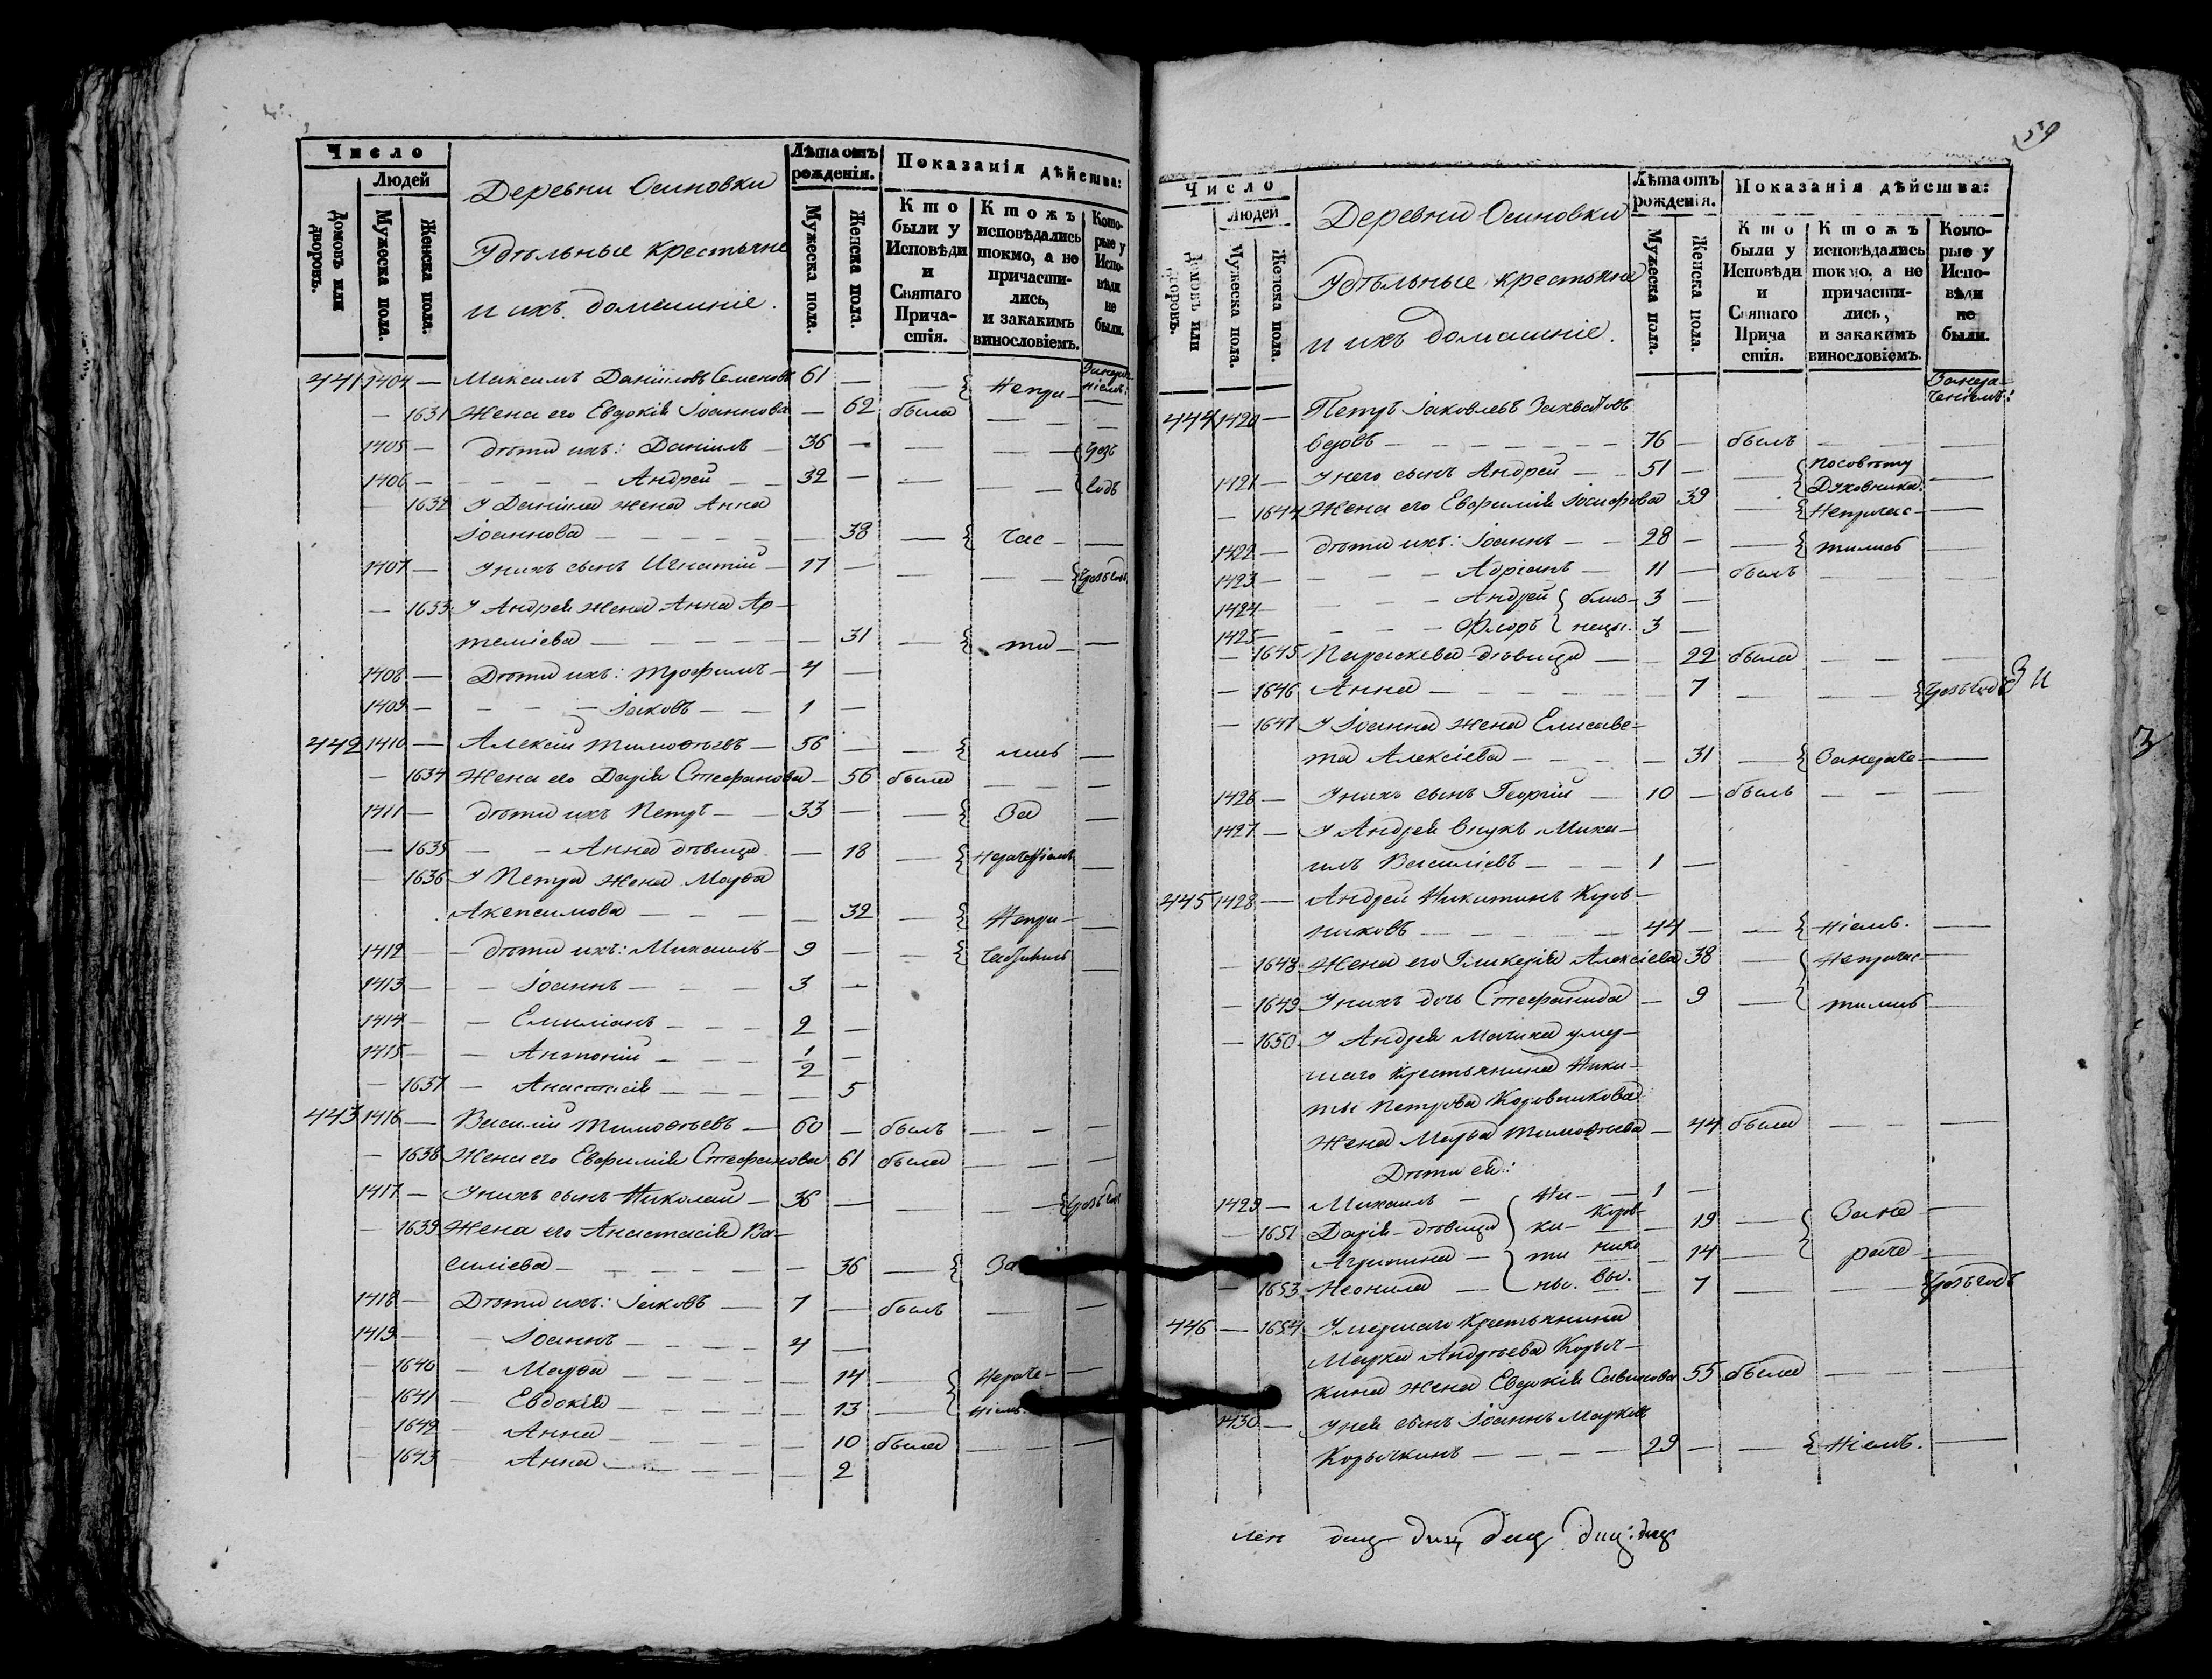 Число
Людей
Домовъ или дворовъ.
Мужеска пола.
Женска пола.
Деревни Осиновки
Удѣльные крестьяне
и ихъ домашніе.
Лѣта отъ рожденія.
Мужеска пола.
Женска пола.
Показанія дѣйства:
Кто были у Исповѣди и Святаго Причастія.
Ктожъ исповѣдались токмо, а не причастились, и закакимъ винословіемъ.
Которые у Исповѣди не были.
441 1404 — Максимъ Даніиловъ Семеновъ 61 — — Непри-
— 1631 Жена его Евдокія Іоаннова — 62 была — —
1405 — дѣти ихъ: Даніилъ — 36 — — —
1406 — — — — Андрей — — 32 — — — годъ
— 1632 У Даніила жена Анна
Іоаннова — — — — — 38 — час- —
1407 — У нихъ сынъ Игнатій — 17 — — —
— 1633 У Андрея жена Анна Ар-
теміева — — — — — 31 — ти- —
1408 — Дѣти ихъ: Трофимъ — 4 —
1409 — — — — Іаковъ — — 1 —
442 1410 — Алексій Тимоѳѣевъ — 56 — — лись —
— 1634 Жена его Дарія Стефанова — 56 была — —
1411 — дѣти ихъ Петръ — — 33 — — За —
— 1635 — — Анна дѣвица — 18 — нераченіемъ —
— 1636 У Петра жена Марѳа
Акепсимова — — — — 32 — Непри- —
1412 — — дѣти ихъ: Михаилъ — 9 — — —
1413 — — Іоаннъ — — — 3 —
1414 — — Емиліанъ — — — 2 —
1415 — — Антоній — — — 1/2 —
— 1637 — Анастасія — — — — 5
443 1416 — Василій Тимоѳѣевъ — 60 — былъ — — —
— 1638 Жена его Евфимія Стефанова 61 была — — —
1417 — У нихъ сынъ Николай — 36 — — —
— 1639 Жена его Анастасія Ва-
силіева — — — — — — 36 — За
1418 — Дѣти ихъ: Іаковъ — 7 — былъ — —
1419 — — Іоаннъ — — — — 4 —
— 1640 — Марѳа — — — — — 14 — Нераче- —
— 1641 — Евдокія — — — — — 13 — ніемъ
— 1642 — Анна — — — — — 10 была — — —
— 1643 — Анна — — — — — 2
59
Число
Людей
Домовъ или дворовъ.
Мужеска пола.
Женска пола.
Деревни Осиновки
Удѣльные крестьяне
и ихъ домашніе.
Лѣта отъ рожденія.
Мужеска пола.
Женска пола.
Показанія дѣйства:
Кто были у Исповѣди и Святаго Причастія.
Ктожъ исповѣдались токмо, а не причастились, и закакимъ винословіемъ.
Которые у Исповѣди не были.
Занера-
ченіемъ:
444 1420 — Петръ Іаковлевъ Захватовъ
вдовъ — — — — — — — 76 — былъ — — —
1421 — У него сынъ Андрей — — 51 — — Посовѣту Духовника. —
— 1644 Жена его Евфимія Іосифова 39 — Непричас- —
1422 — дѣти ихъ: Іоаннъ — — 28 — — тились —
1423 — — — — Адріанъ — 11 — былъ — — —
1424 — — — — Андрей близ- 3 —
1425 — — — — Флоръ нецы. 3 —
— 1645 Параскева дѣвица — — 22 была — — —
— 1646 Анна — — — — — — 7 — — — Чрезъ годъ
— 1647 У Іоанна жена Елисаве-
та Алексіева — — — — 31 — Занераче- —
1426 — У нихъ сынъ Георгій — 10 — былъ — — —
1427 — У Андрея внукъ Миха-
илъ Василіевъ — — — 1 —
445 1428 — Андрей Никитинъ Коров-
никовъ — — — — — 44 — — ніемъ. —
— 1648 Жена его Гликерія Алексіева 38 — Непричас- —
— 1649 У нихъ дочь Стефанида — 9 — тились —
— 1650 У Андрея мачиха умер-
шаго крестьянина Ники-
ты Петрова Коровникова
жена Марѳа Тимоѳеева — 44 была — — —
Дѣти ея:
1429 — Михаилъ — Ни- — 1 —
— 1651 Дарія дѣвица ки- Коров- — 19 — Зане —
Агрипина — ти нико — 14 — раче —
— 1653 Неонила — ны. вы. — 7 — — Чрезъ годъ
446 — 1654 Умершаго крестьянина
Марка Андрѣева Корыч-
кина жена Евдокія Савинова 55 была — — —
1430 — У нея сынъ Іоаннъ Марковъ
Корычкинъ — — — — 29 — — ніемъ. —